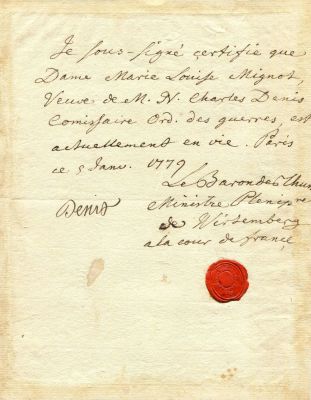 Je sous-signé certifie que
Dame Marie Louise Mignot,
Veuve de M. N. Charles Denis
Comissaire Ord. des guerres, est
actuellement en vie. Paris
ce 5 Janv. 1779
Le Baron de Thun
Denis
Ministre Plenipre
de Wirtemberg
a la cour de france